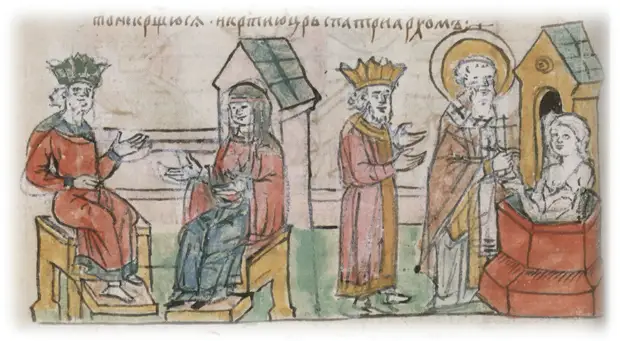 то некрщюсѧ · икртиюцрь спатриархомъ: